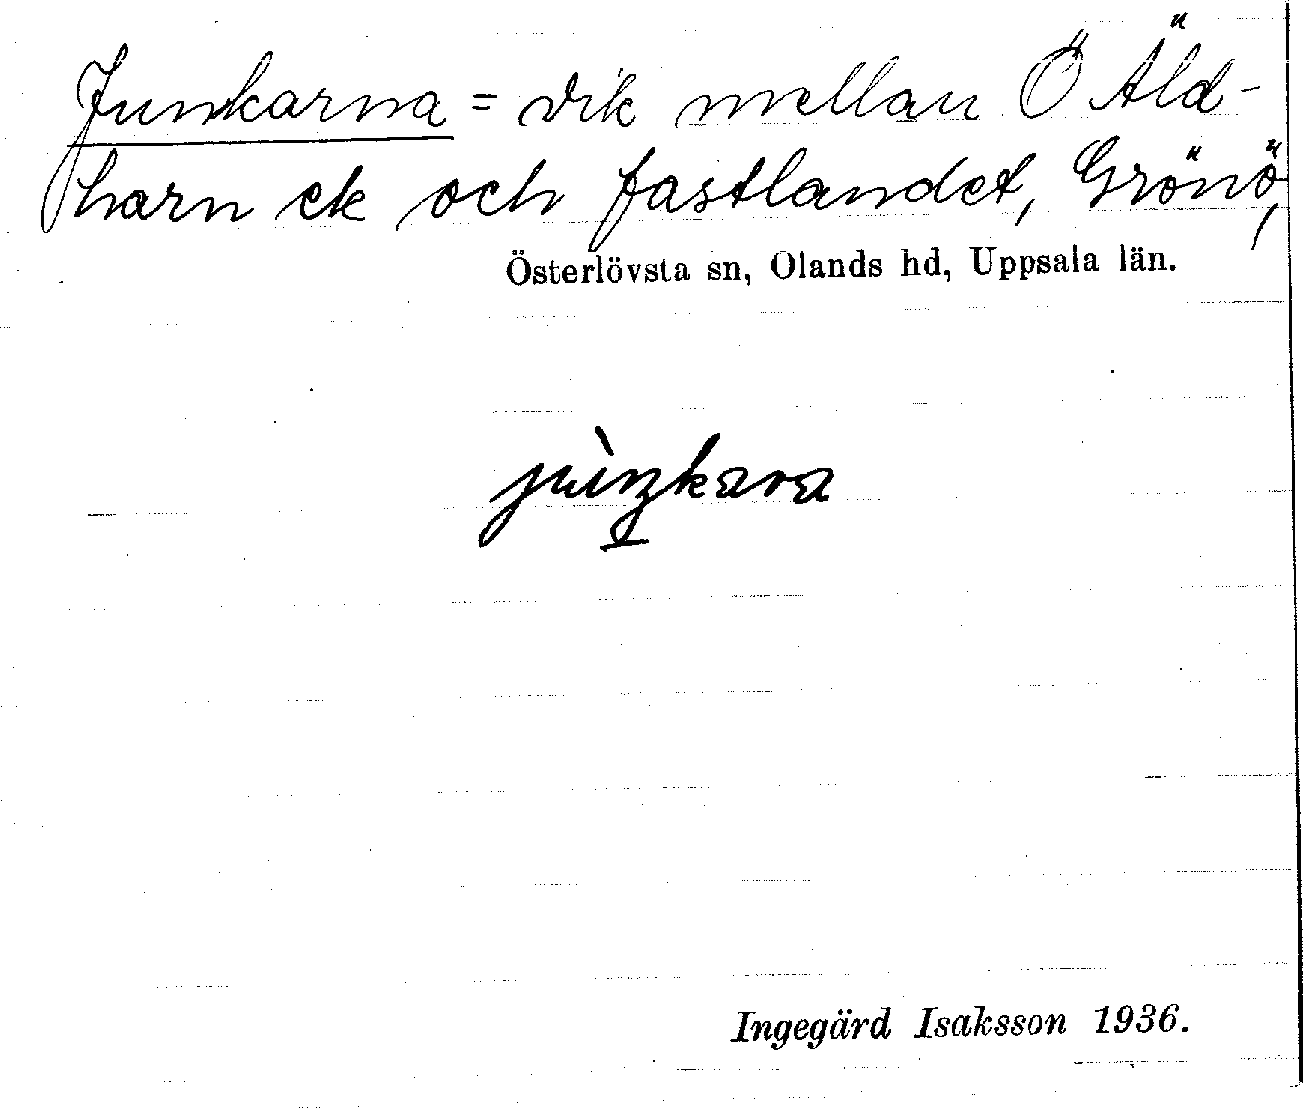 Junkarna = vik mellan Ö Äld-
harn ek och fastlandet, Grönö,
Österlövsta sn, Olands hd, Uppsala län.
Ingegärd Isaksson 1936.